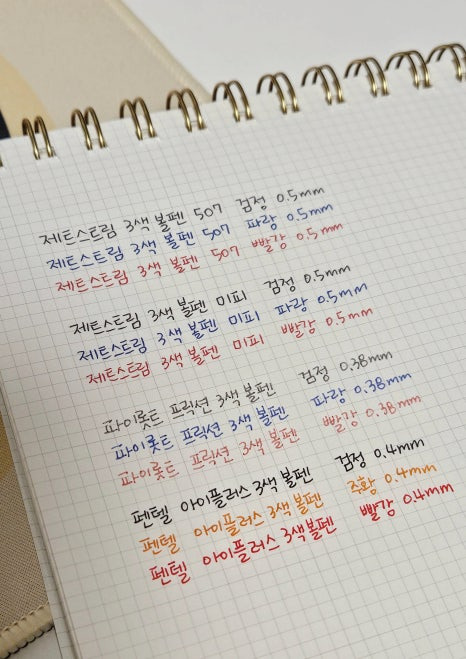 제트스트림 3색 볼펜 507 검정 0.5mm
제트스트림 3색 볼펜 507 파랑 0.5mm
제트스트림 3색 볼펜 507 빨강 0.5mm
제트스트림 3색 볼펜 미피 검정 0.5mm
제트스트림 3색 볼펜 미피 파랑 0.5mm
제트스트림 3색 볼펜 미피 빨강 0.5mm
파이롯트 프릭션 3색 볼펜 검정 0.38mm
파이롯트 프릭션 3색 볼펜 파랑 0.38mm
파이롯트 프릭션 3색 볼펜 빨강 0.38mm
펜텔 아이플러스 3색 볼펜 검정 0.4mm
펜텔 아이플러스 3색 볼펜 주황 0.4mm
펜텔 아이플러스 3색 볼펜 빨강 0.4mm